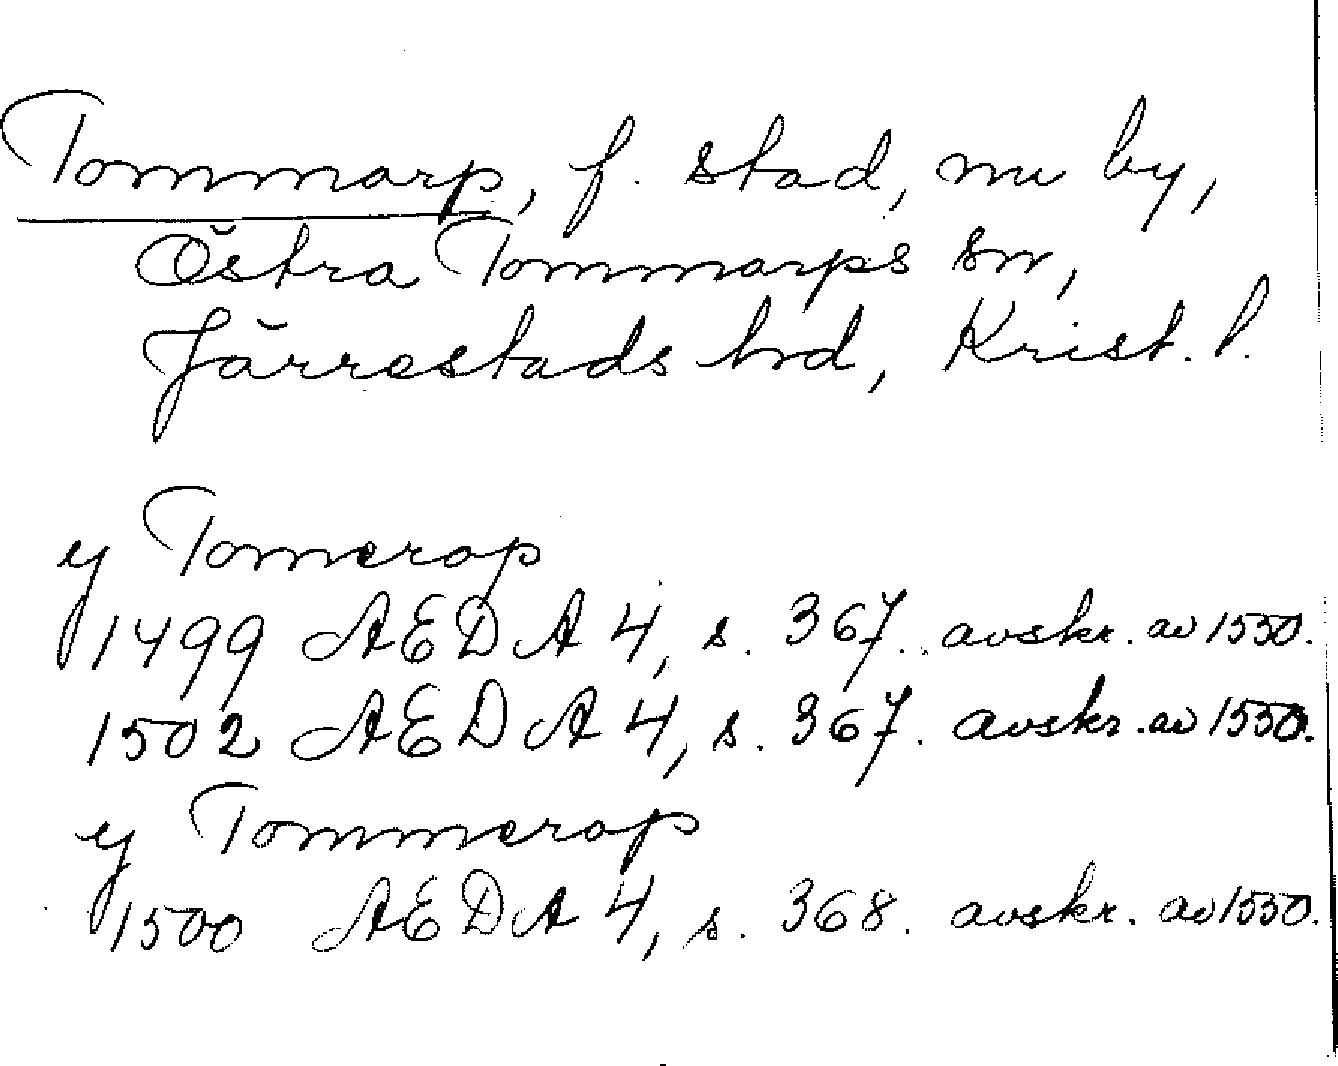 Tommarp, f. stad, nu by,
Östra Tommarps sn,
Järrestads hrd, Krist. l.
y Tomerop
1499 AEDA 4, s. 367. avskr. av 1550.
1502 AEDA 4, s. 367. avskr. av 1550.
y Tommerop
1500 AEDA 4, s. 368. avskr. av 1550.